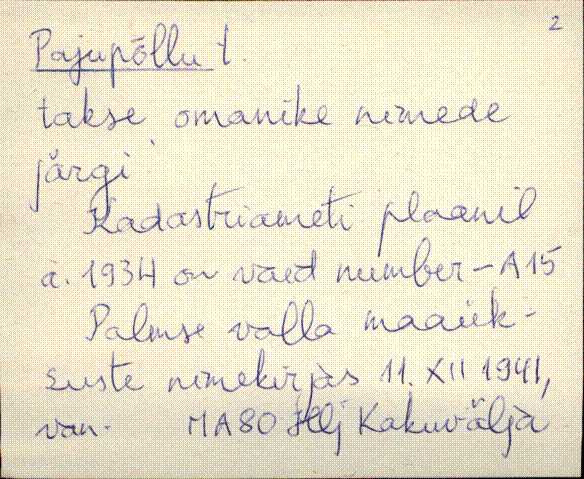 2
Pajupõllu t.
takse omanike nimede
järgi
Kadastriameti plaanil
a. 1934 on vaid number – A15
Palmse valla maaük-
suste nimekirjas 11. XII 1941,
van. MA80 Hlj Kakuvälja